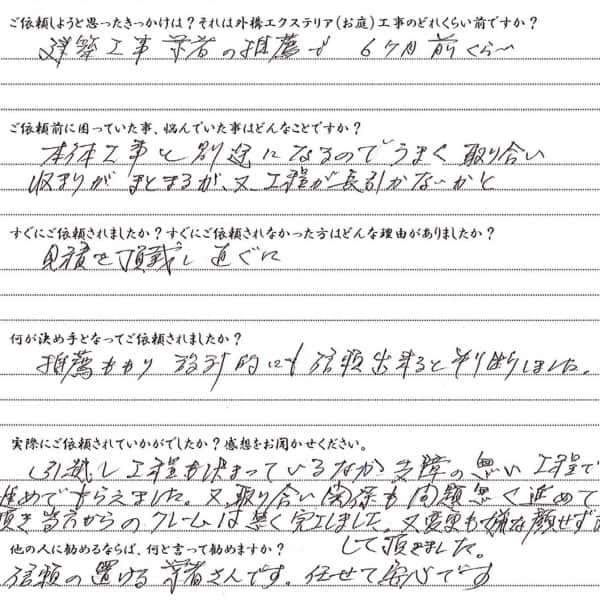 ご依頼しようと思ったきっかけは？それは外構エクステリア（お庭）工事のどれくらい前ですか？
建築工事業者の推薦で 6ケ月前くらい
ご依頼前に困っていた事、悩んでいた事はどんなことですか？
本体工事と別途になるのでうまく取り合い
収まりがまとまるか、又工程が長引かないかと
すぐにご依頼されましたか？すぐにご依頼されなかった方はどんな理由がありましたか？
見積を頂戴し直ぐに
何が決め手となってご依頼されましたか？
推薦もあり 設計的にも信頼出来ると判断しました。
実際にご依頼されていかがでしたか？感想をお聞かせください。
引越し工程も決まっているなか支障の無い工程で
進めてもらえました。又取り合い関係も問題無く進めて
頂き当方からのクレームは無く完工しました。又変更も嫌な顔せず
して頂きました。
他の人に勧めるならば、何と言って勧めますか？
信頼の置ける業者さんです。任せて安心です